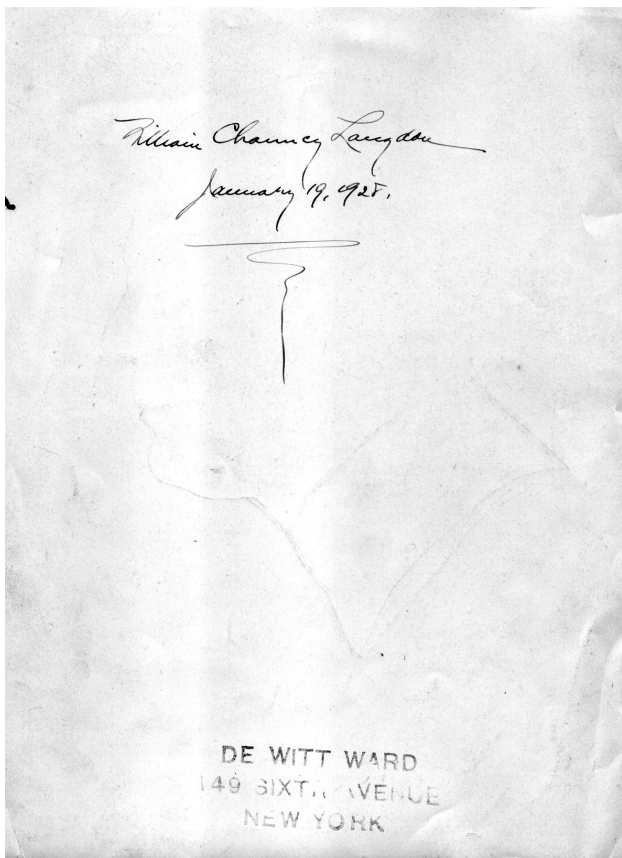 William Chauncy Langdon
January 19, 1928.
DE WITT WARD
149 SIXTH AVENUE
NEW YORK